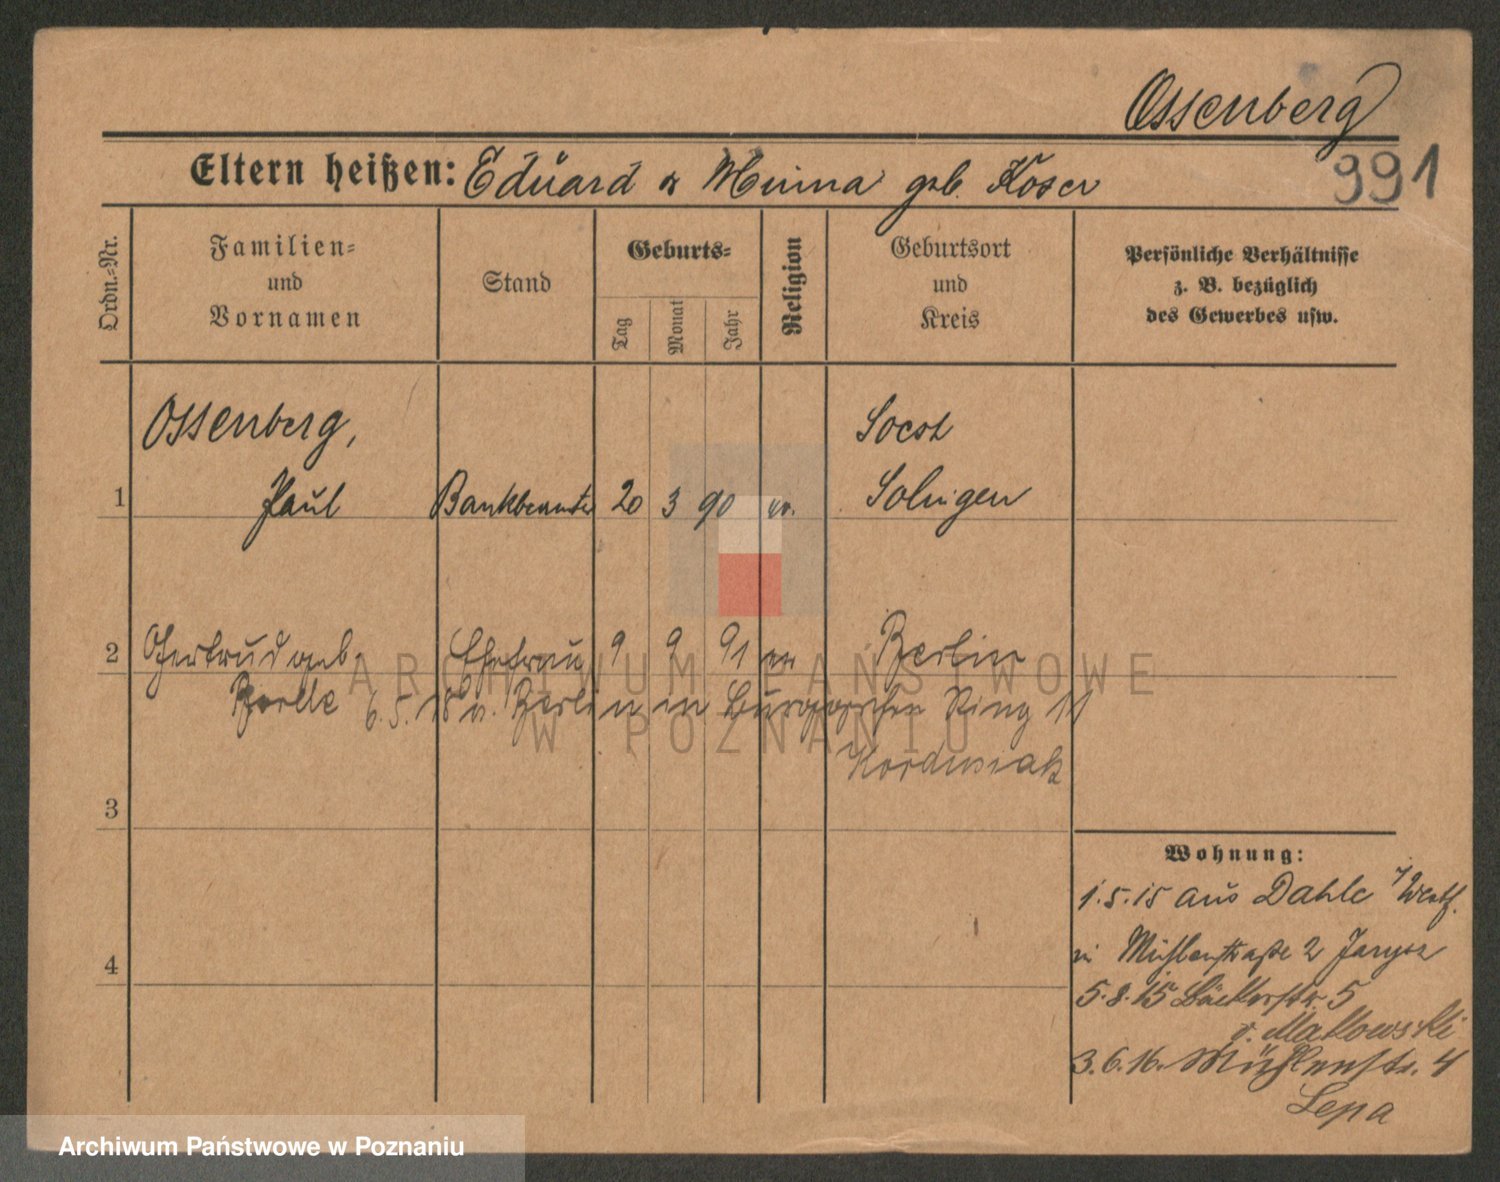 Ossenberg
Eltern heißen: Eduard & Minna geb. Köser
991
Ordn.=Nr.
Familien=
und
Vornamen
Stand
Geburts=
Tag
Monat
Jahr
Religion
Geburtsort
und
Kreis
Persönliche Verhältnisse
z. B. bezüglich
des Gewerbes usw.
Ossenberg,
Soest
1 Paul Bankbeamter 20 3 90 ev. Solingen
2 Gertrud geb. Ehefrau 9 9 91 ev. Berlin
6.5.18 v. Berlin in Ring 11
Kordusiak
3
4
Wohnung:
1.5.15 aus Dahle Westf.
in Mühlenstraße 2
5.8.15 Bäckerstr. 5
v. Makowski
3.6.16. Mühlenstr. 4
Lepa
ARCHIWUM PAŃSTWOWE
W POZNANIU
Archiwum Państwowe w Poznaniu